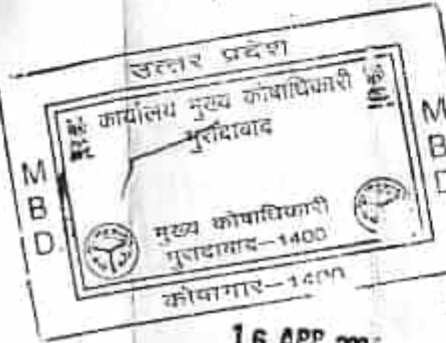 उत्तर प्रदेश
कार्यालय मुख्य कोषाधिकारी
मुरादाबाद
M B D
M B D
मुख्य कोषाधिकारी
मुरादाबाद-1400
कोषागार-1400
16 APR